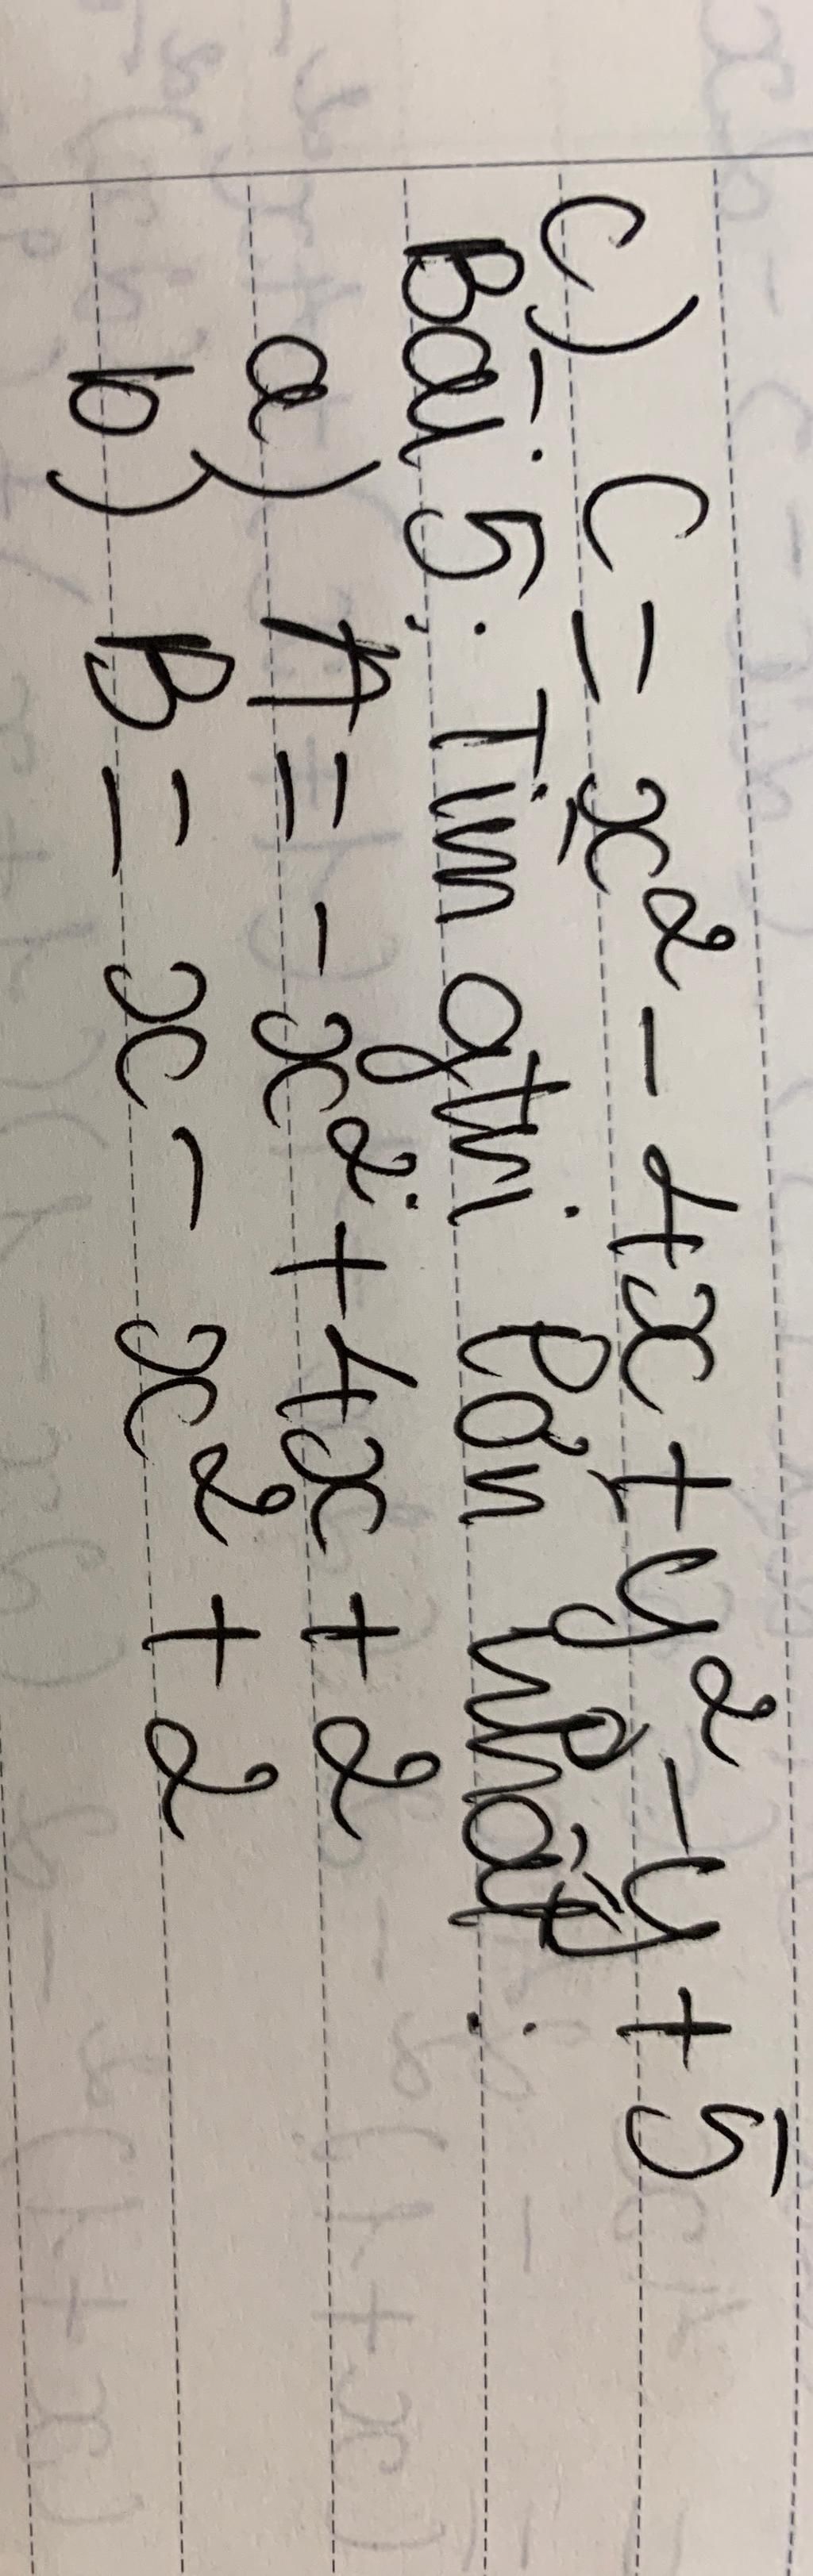 c) C = x² - 4x + y² - y + 5
Bài 5: Tìm gtri lớn nhất:
a) A = - x² + 4x + 2
b) B = x - x² + 2